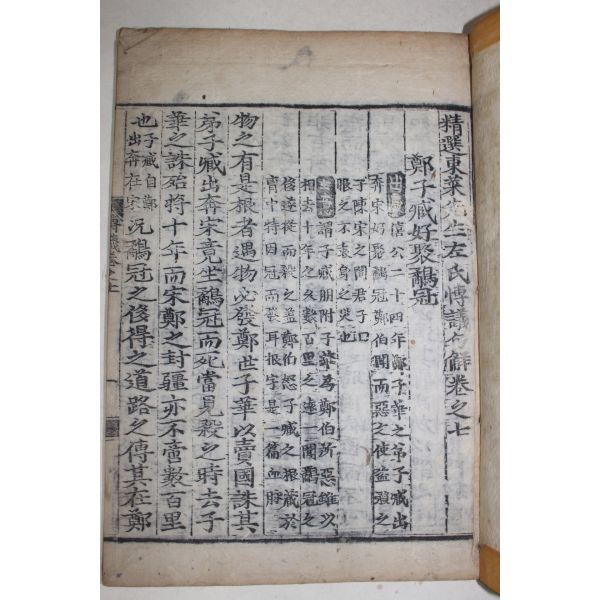 精選東萊先生左氏博議句解卷之七
鄭子臧好聚鷸冠
出處僖公二十四年鄭子華之弟子臧出
奔宋好聚鷸冠鄭伯聞而惡之使盜殺之
子陳宋之間君子曰
服之不衷身之災也
謂子臧朋附子華為鄭伯所惡雖以
相去十年之久數百里之遠一聞鷸冠之
後遂從而殺之蓋鄭伯怒子臧之根藏於
胷中特因冠而發耳根字是一篇血脉
物之有是根者遇物必發鄭世子華以賣國誅其
弟子臧出奔宋竟坐鷸冠而死當見殺之時去子
華之誅殆將十年而宋鄭之封疆亦不啻數百里
也子臧自鄭
出奔在宋況鷸冠之後得之道路之傳其在鄭